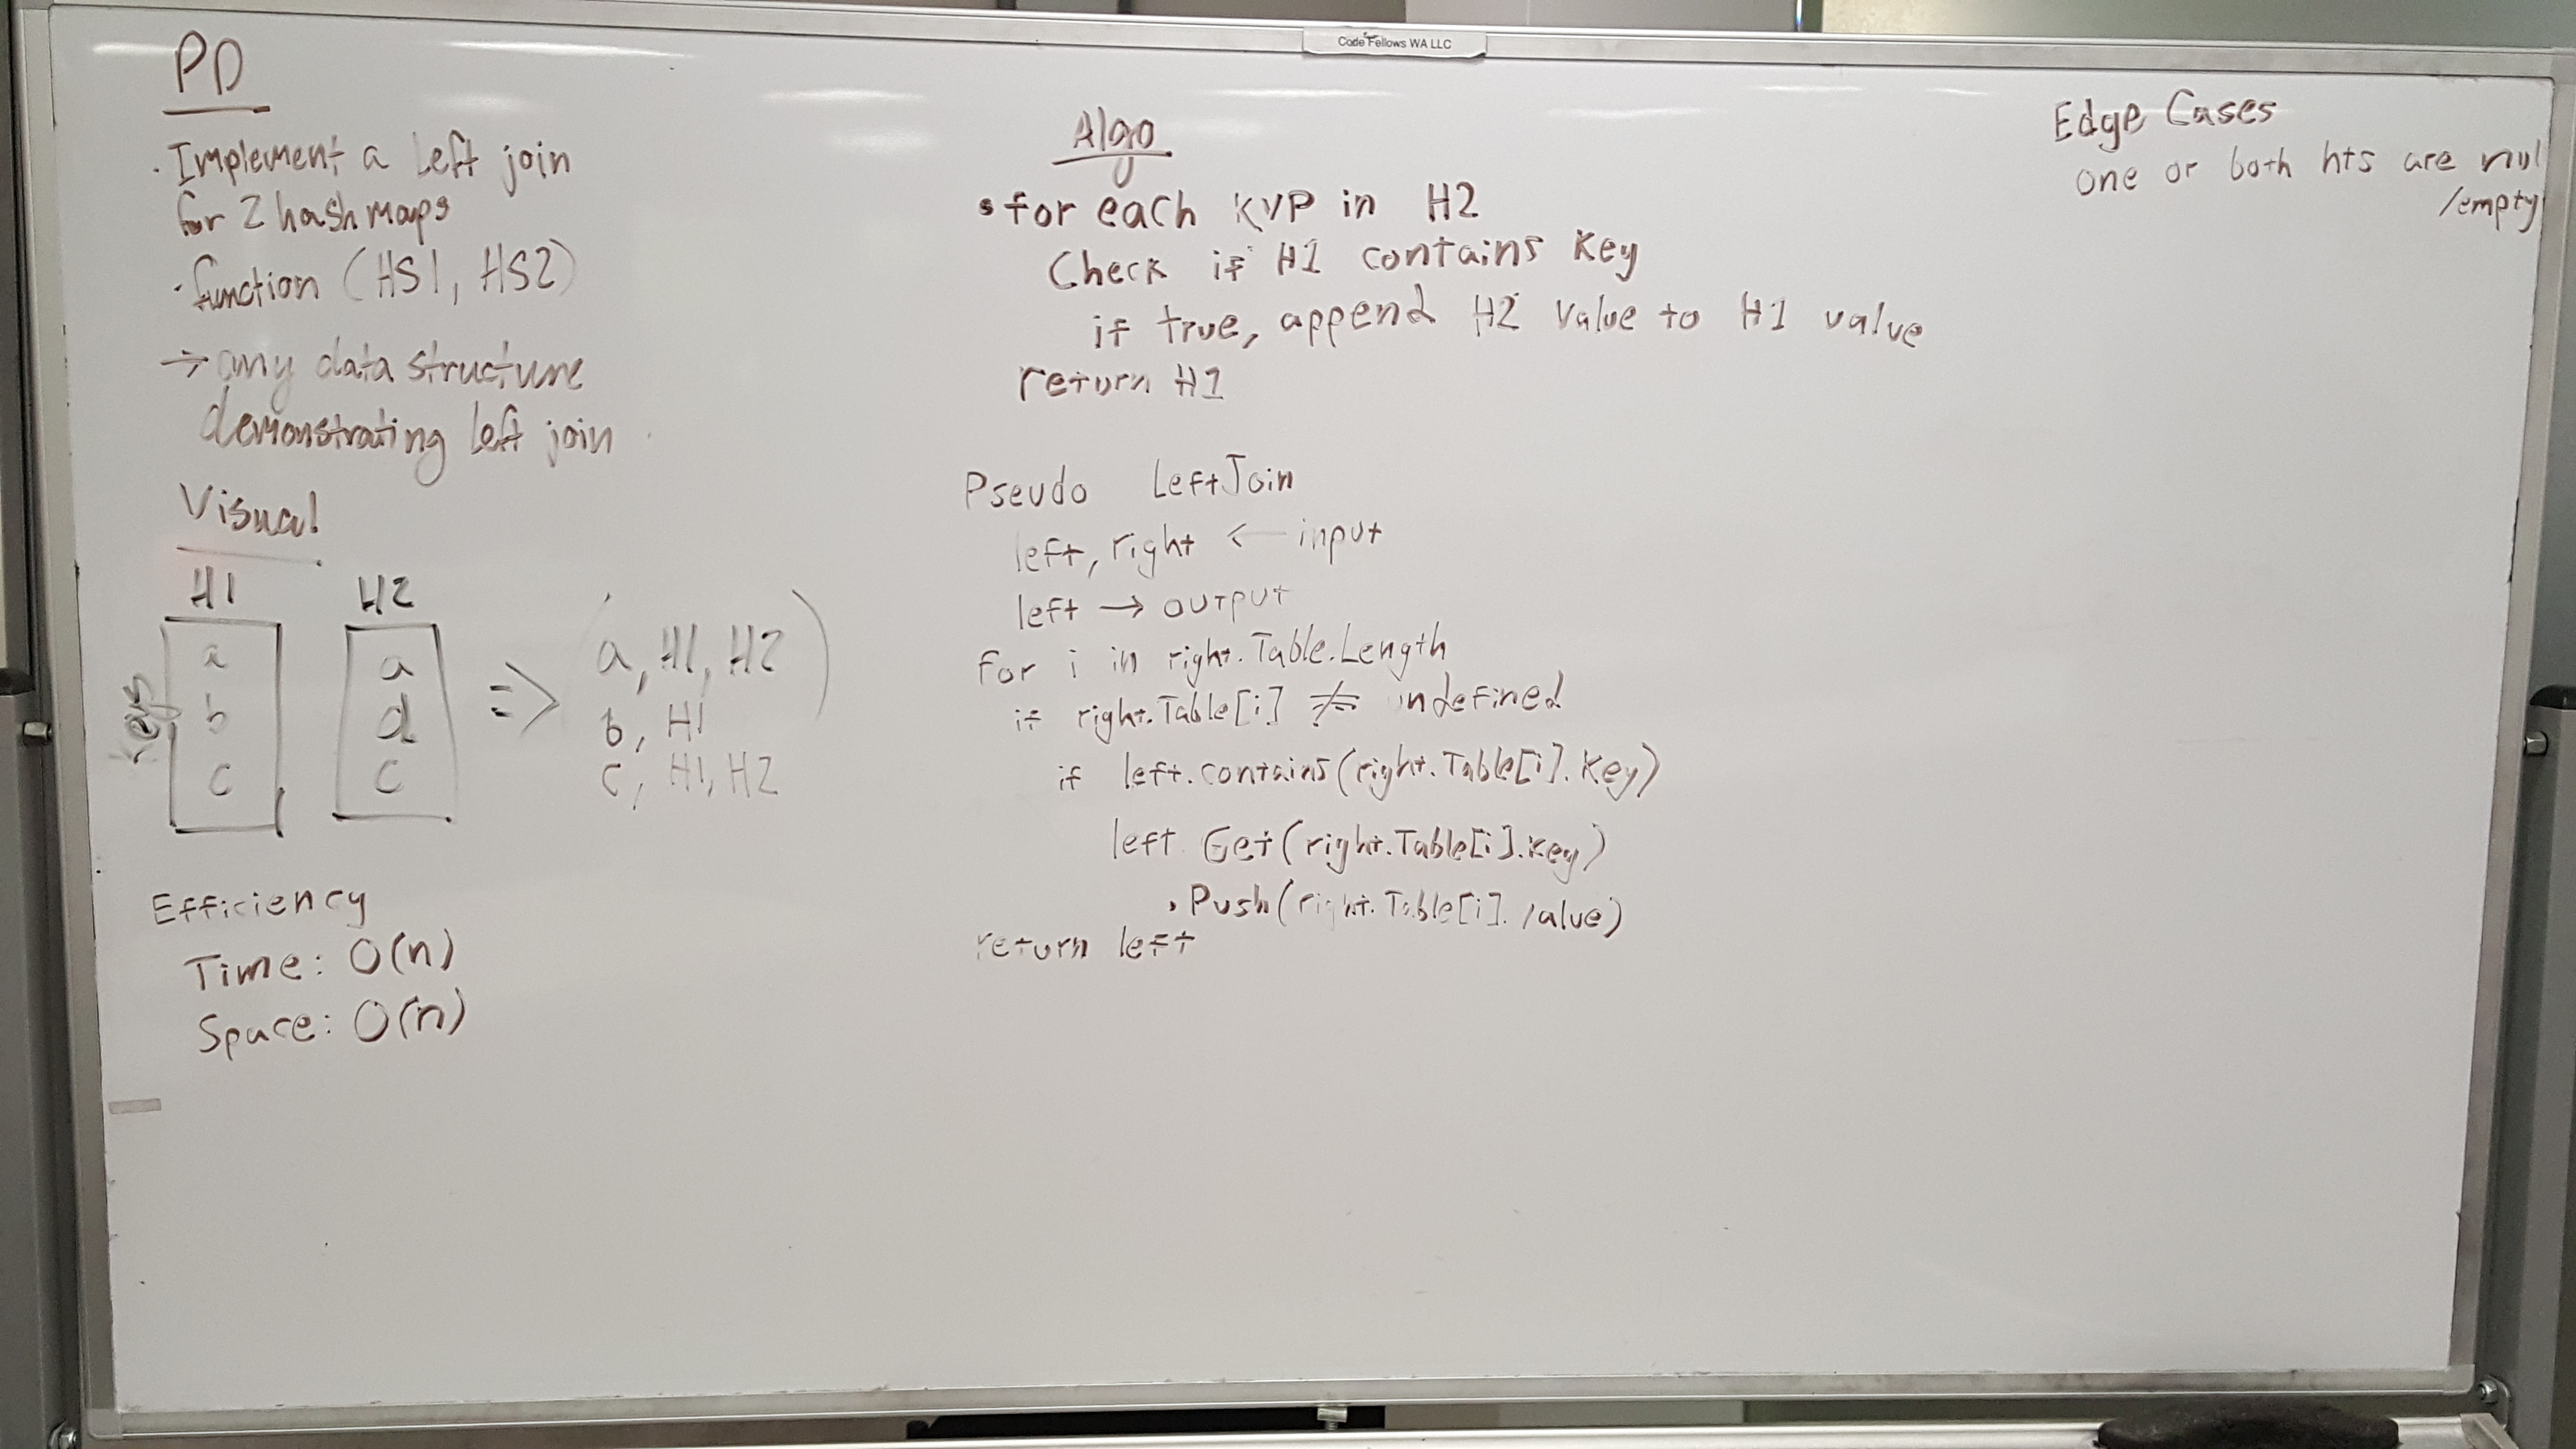 Code Fellows WA LLC
PD
· Implement a left join
for 2 hashmaps
· function (HS1, HS2)
→ any data structure
demonstrating left join
Visual
H1 H2
Keys
a a => (a, H1, H2)
b d b, H1
c c c, H1, H2
Efficiency
Time: O(n)
Space: O(n)
Algo
• for each KVP in H2
Check if H1 contains Key
if true, append H2 Value to H1 value
return H1
Pseudo LeftJoin
left, right ← input
left → output
for i in right.Table.Length
if right.Table[i] ≠ undefined
if left.contains(right.Table[i].Key)
left.Get(right.Table[i].Key)
.Push(right.Table[i].Value)
return left
Edge Cases
one or both hts are null
/empty